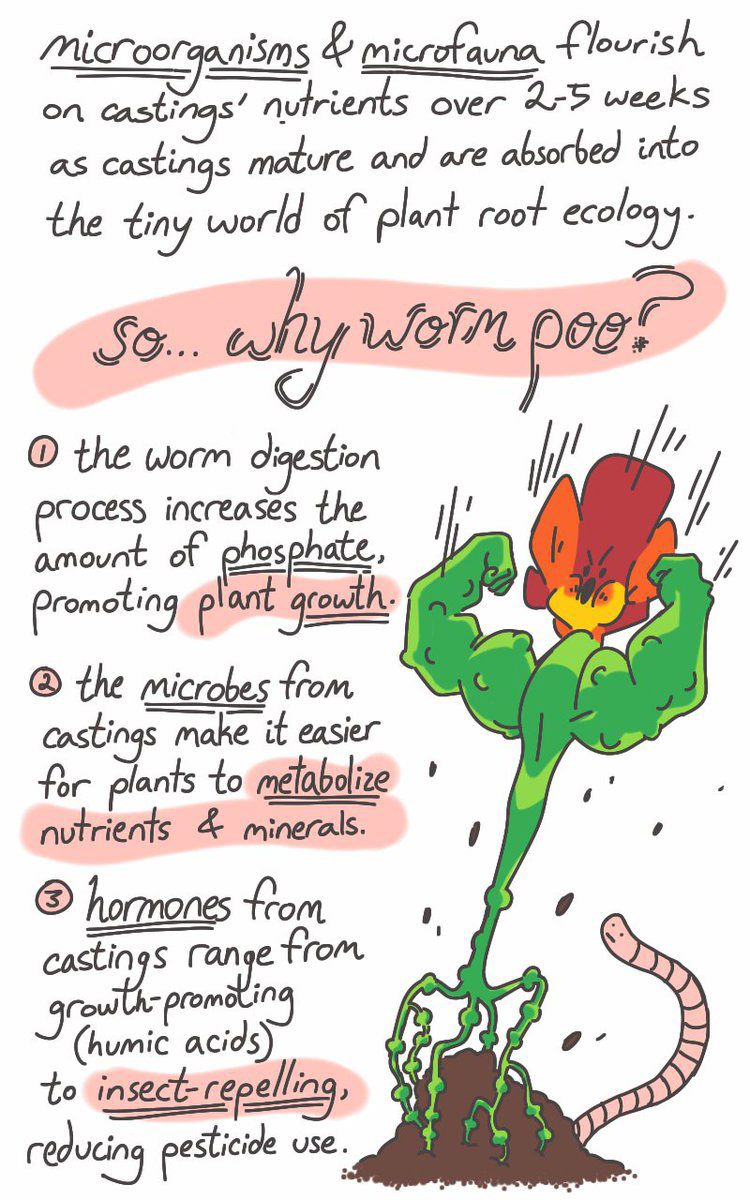 microorganisms & microfauna flourish
on castings' nutrients over 2-5 weeks
as castings mature and are absorbed into
the tiny world of plant root ecology.
so... why worm poo?
1 the worm digestion
process increases the
amount of phosphate,
promoting plant growth.
2 the microbes from
castings make it easier
for plants to metabolize
nutrients & minerals.
3 hormones from
castings range from
growth-promoting
(humic acids)
to insect-repelling,
reducing pesticide use.